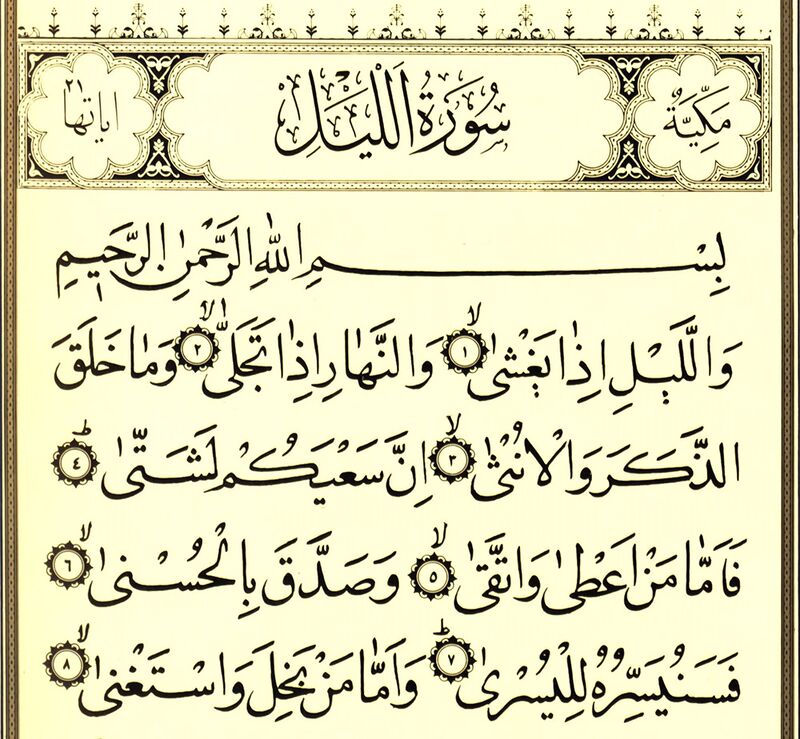 مَكِّيَّةٌ سُورَةُ اَللَّيْلِ اٰيَاتُهَا ٢١
بِسْمِ اللّٰهِ الرَّحْمٰنِ الرَّحِيمِ
وَالَّيْلِ اِذَا يَغْشٰىۙ ﴿١﴾ وَالنَّهَارِ اِذَا تَجَلّٰىۙ ﴿٢﴾ وَمَا خَلَقَ
الذَّكَرَ وَالْاُنْثٰىۙ ﴿٣﴾ اِنَّ سَعْيَكُمْ لَشَتّٰىۜ ﴿٤﴾
فَاَمَّا مَنْ اَعْطٰى وَاتَّقٰىۙ ﴿٥﴾ وَصَدَّقَ بِالْحُسْنٰىۙ ﴿٦﴾
فَسَنُيَسِّرُهُ لِلْيُسْرٰىۜ ﴿٧﴾ وَاَمَّا مَنْ بَخِلَ وَاسْتَغْنٰىۙ ﴿٨﴾